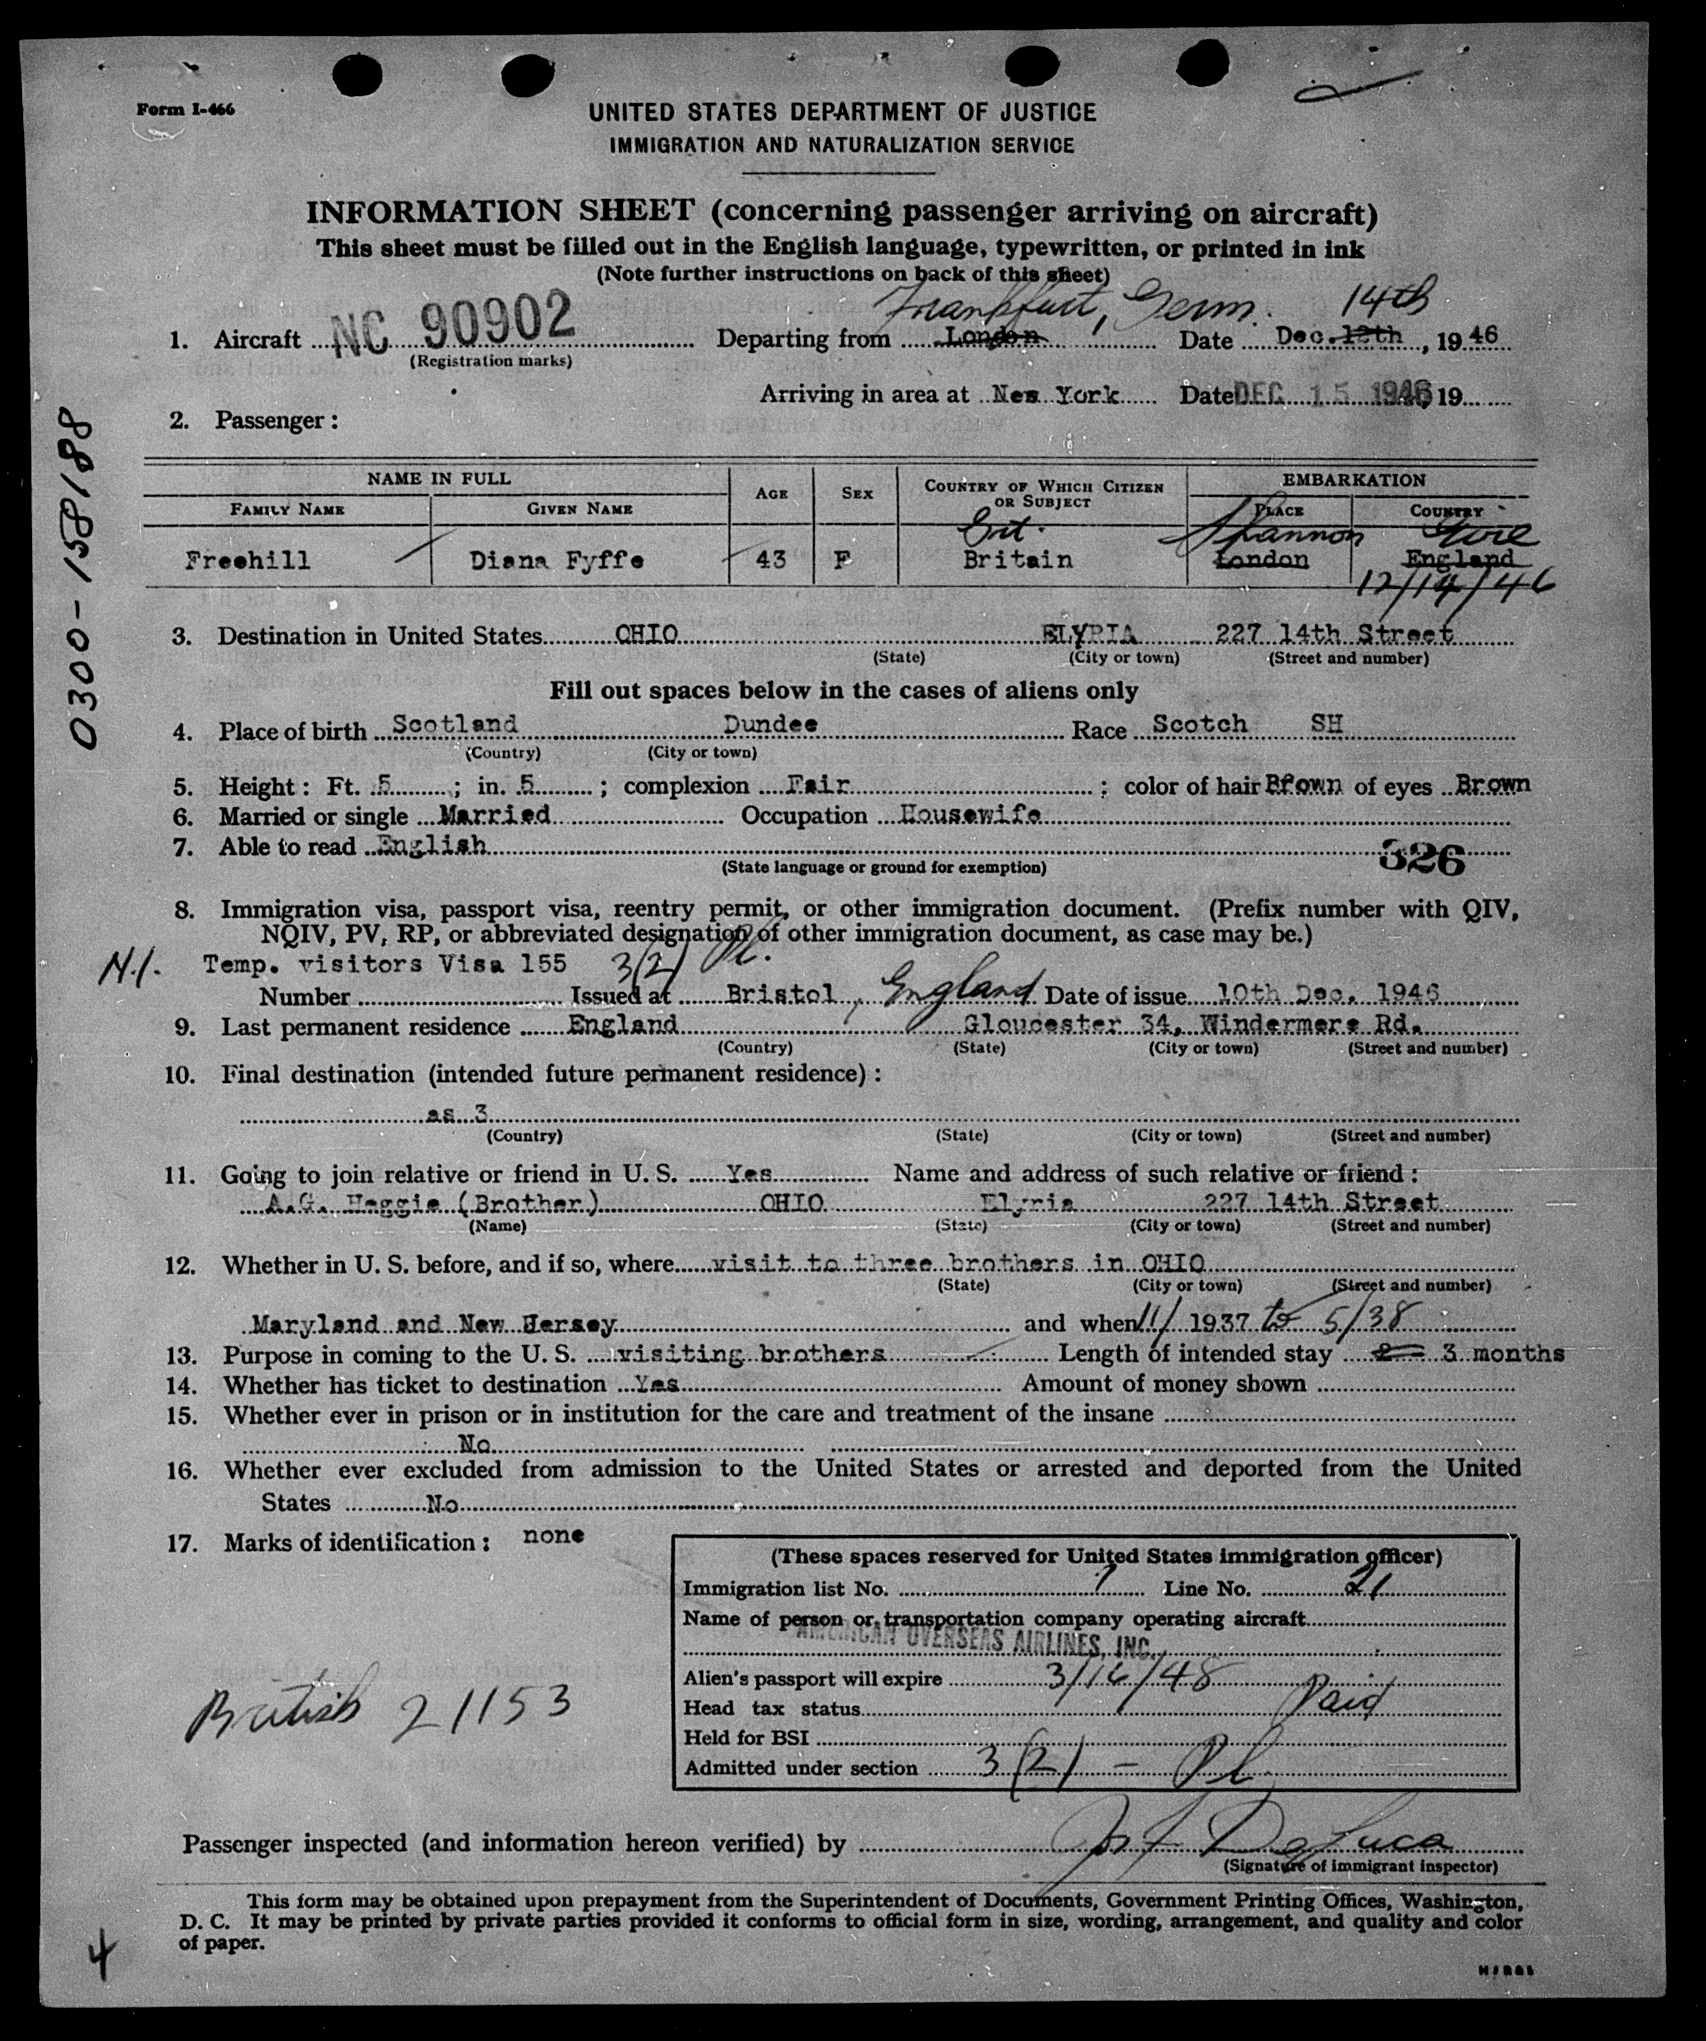 Form I-466
UNITED STATES DEPARTMENT OF JUSTICE
IMMIGRATION AND NATURALIZATION SERVICE
INFORMATION SHEET (concerning passenger arriving on aircraft)
This sheet must be filled out in the English language, typewritten, or printed in ink
(Note further instructions on back of this sheet)
Frankfurt, Germ. 14th
1. Aircraft NC 90902 Departing from London Date Dec. 12th, 19 46
(Registration marks)
Arriving in area at New York Date DEC 15 1946, 19
2. Passenger:
0300-158188
NAME IN FULL AGE SEX COUNTRY OF WHICH CITIZEN OR SUBJECT EMBARKATION
FAMILY NAME GIVEN NAME PLACE COUNTRY
Grt. Shannon Eire
Freehill Diana Fyffe 43 F Britain London England
12/14/46
3. Destination in United States OHIO ELYRIA 227 14th Street
(State) (City or town) (Street and number)
Fill out spaces below in the cases of aliens only
4. Place of birth Scotland Dundee Race Scotch SH
(Country) (City or town)
5. Height: Ft. 5; in. 5; complexion Fair; color of hair Brown of eyes Brown
6. Married or single Married Occupation Housewife
7. Able to read English
(State language or ground for exemption) 326
8. Immigration visa, passport visa, reentry permit, or other immigration document. (Prefix number with QIV,
NQIV, PV, RP, or abbreviated designation of other immigration document, as case may be.)
N.I. Temp. visitors Visa 155 3(2) Pl.
Number Issued at Bristol, England Date of issue 10th Dec. 1946
9. Last permanent residence England Gloucester 34, Windermere Rd.
(Country) (State) (City or town) (Street and number)
10. Final destination (intended future permanent residence):
as 3
(Country) (State) (City or town) (Street and number)
11. Going to join relative or friend in U. S. Yes Name and address of such relative or friend:
A.G. Heggie (Brother) OHIO Elyria 227 14th Street
(Name) (State) (City or town) (Street and number)
12. Whether in U. S. before, and if so, where visit to three brothers in OHIO
(State) (City or town) (Street and number)
Maryland and New Hersey and when 11/ 1937 to 5/38
13. Purpose in coming to the U. S. visiting brothers Length of intended stay 2 3 months
14. Whether has ticket to destination Yes Amount of money shown
15. Whether ever in prison or in institution for the care and treatment of the insane
No
16. Whether ever excluded from admission to the United States or arrested and deported from the United
States No
17. Marks of identification: none
(These spaces reserved for United States immigration officer)
Immigration list No. 1 Line No. 21
Name of person or transportation company operating aircraft
AMERICAN OVERSEAS AIRLINES, INC.
Alien's passport will expire 3/16/48
Head tax status Paid
Held for BSI
Admitted under section 3(2) - Pl.
British 21153
Passenger inspected (and information hereon verified) by Jos F DeLuca
(Signature of immigrant inspector)
This form may be obtained upon prepayment from the Superintendent of Documents, Government Printing Offices, Washington,
D. C. It may be printed by private parties provided it conforms to official form in size, wording, arrangement, and quality and color
of paper.
4